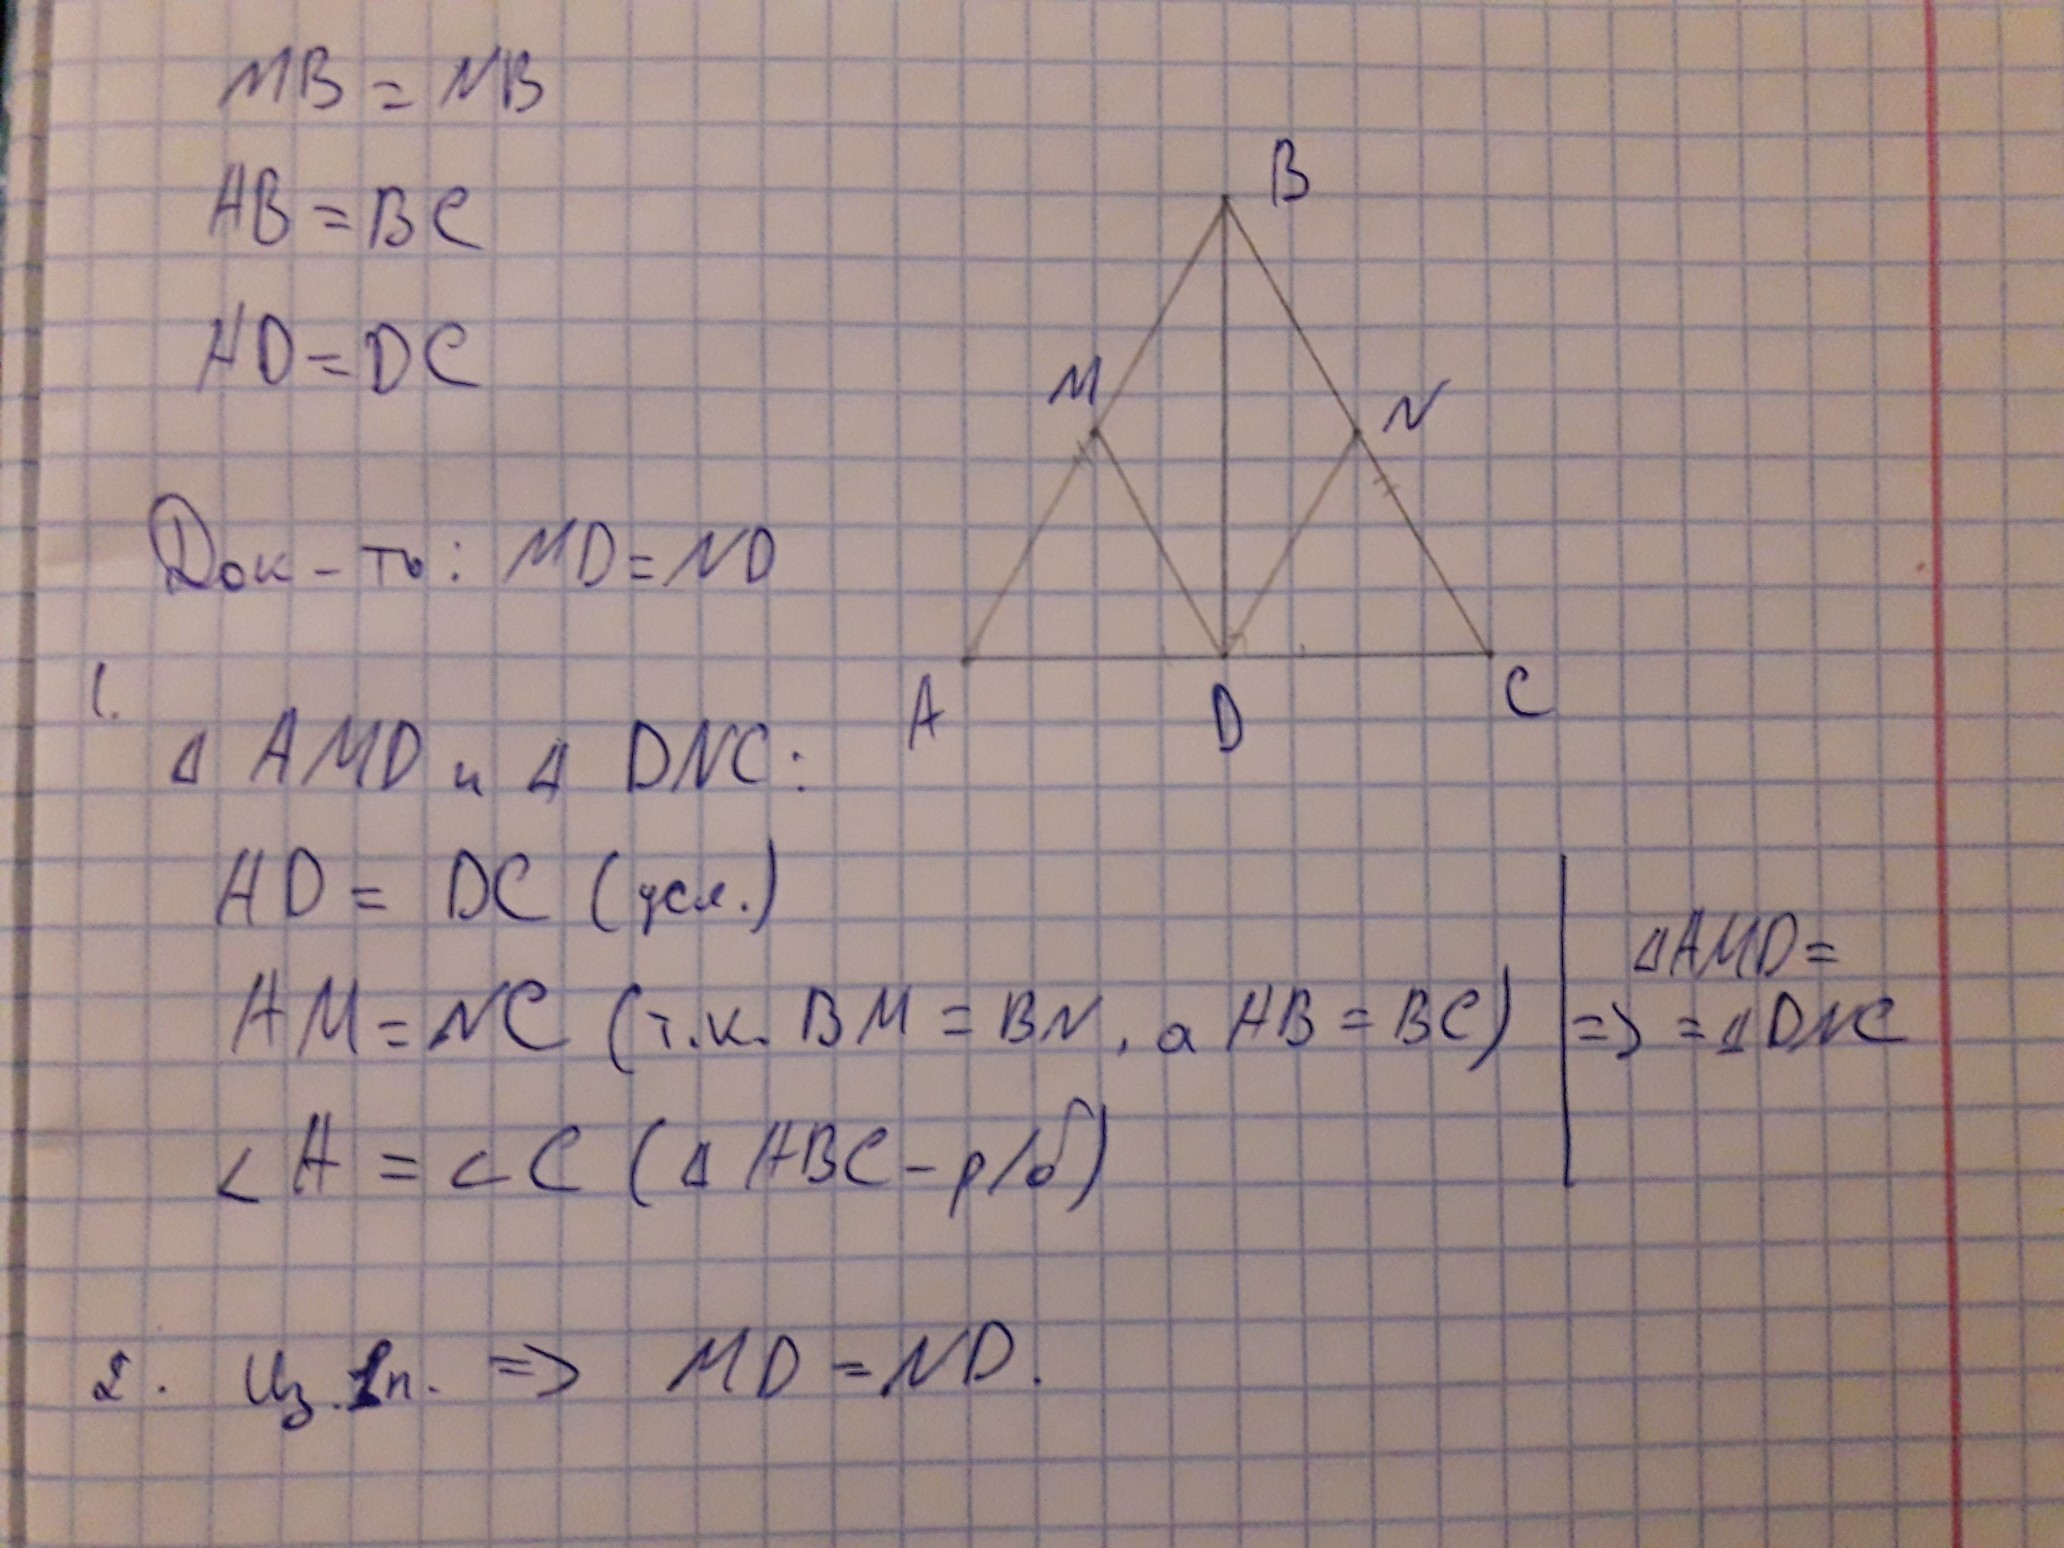 MB = NB
AB = BC
AD = DC
Док-ть: MD = ND
B
M
N
A
D
C
1.
Δ AMD и Δ DNC:
AD = DC (усл.)
AM = NC (т.к. BM = BN, а AB = BC)
ΔAMD =
=> = ΔDNC
∠A = ∠C (Δ ABC - р/б)
2. Из 1п. => MD = ND.